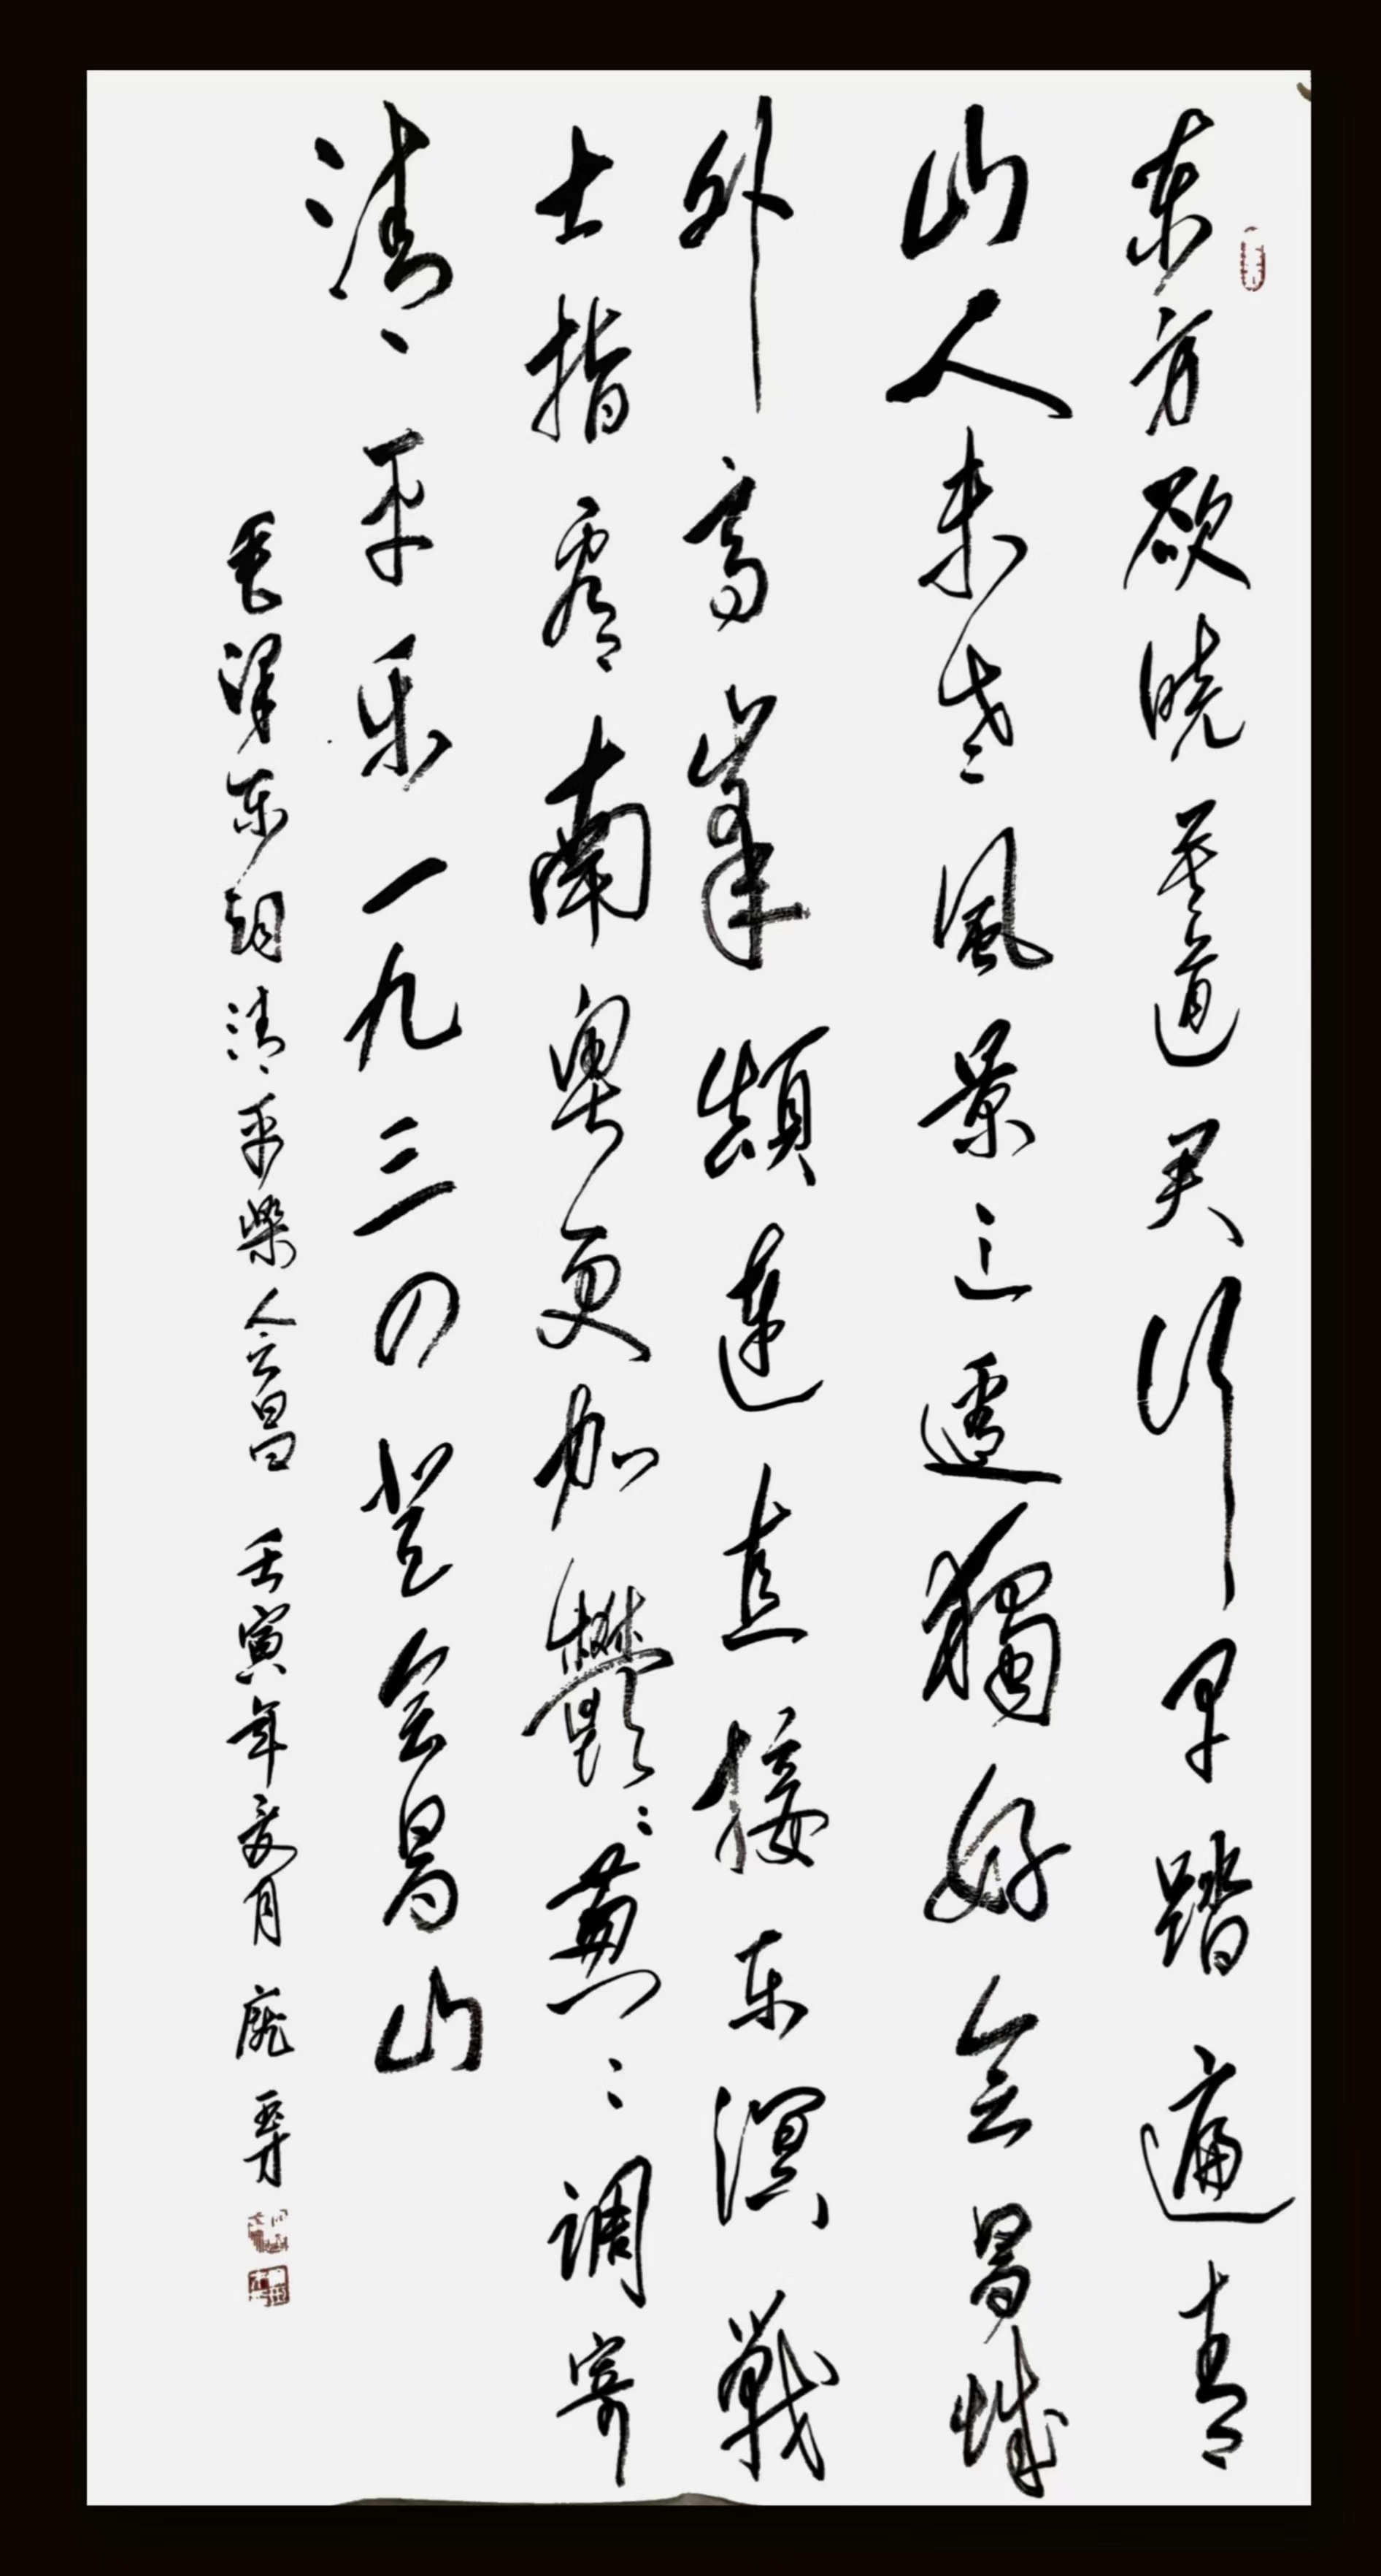 东方欲晓莫道君行早踏遍青
山人未老風景这邊獨好会昌城
外高峯顛連直接东溟戰
士指看南粤更加鬱〻葱〻调寄
清平乐一九三四登会昌山
毛澤东词清平樂会昌 壬寅年夏月 庞